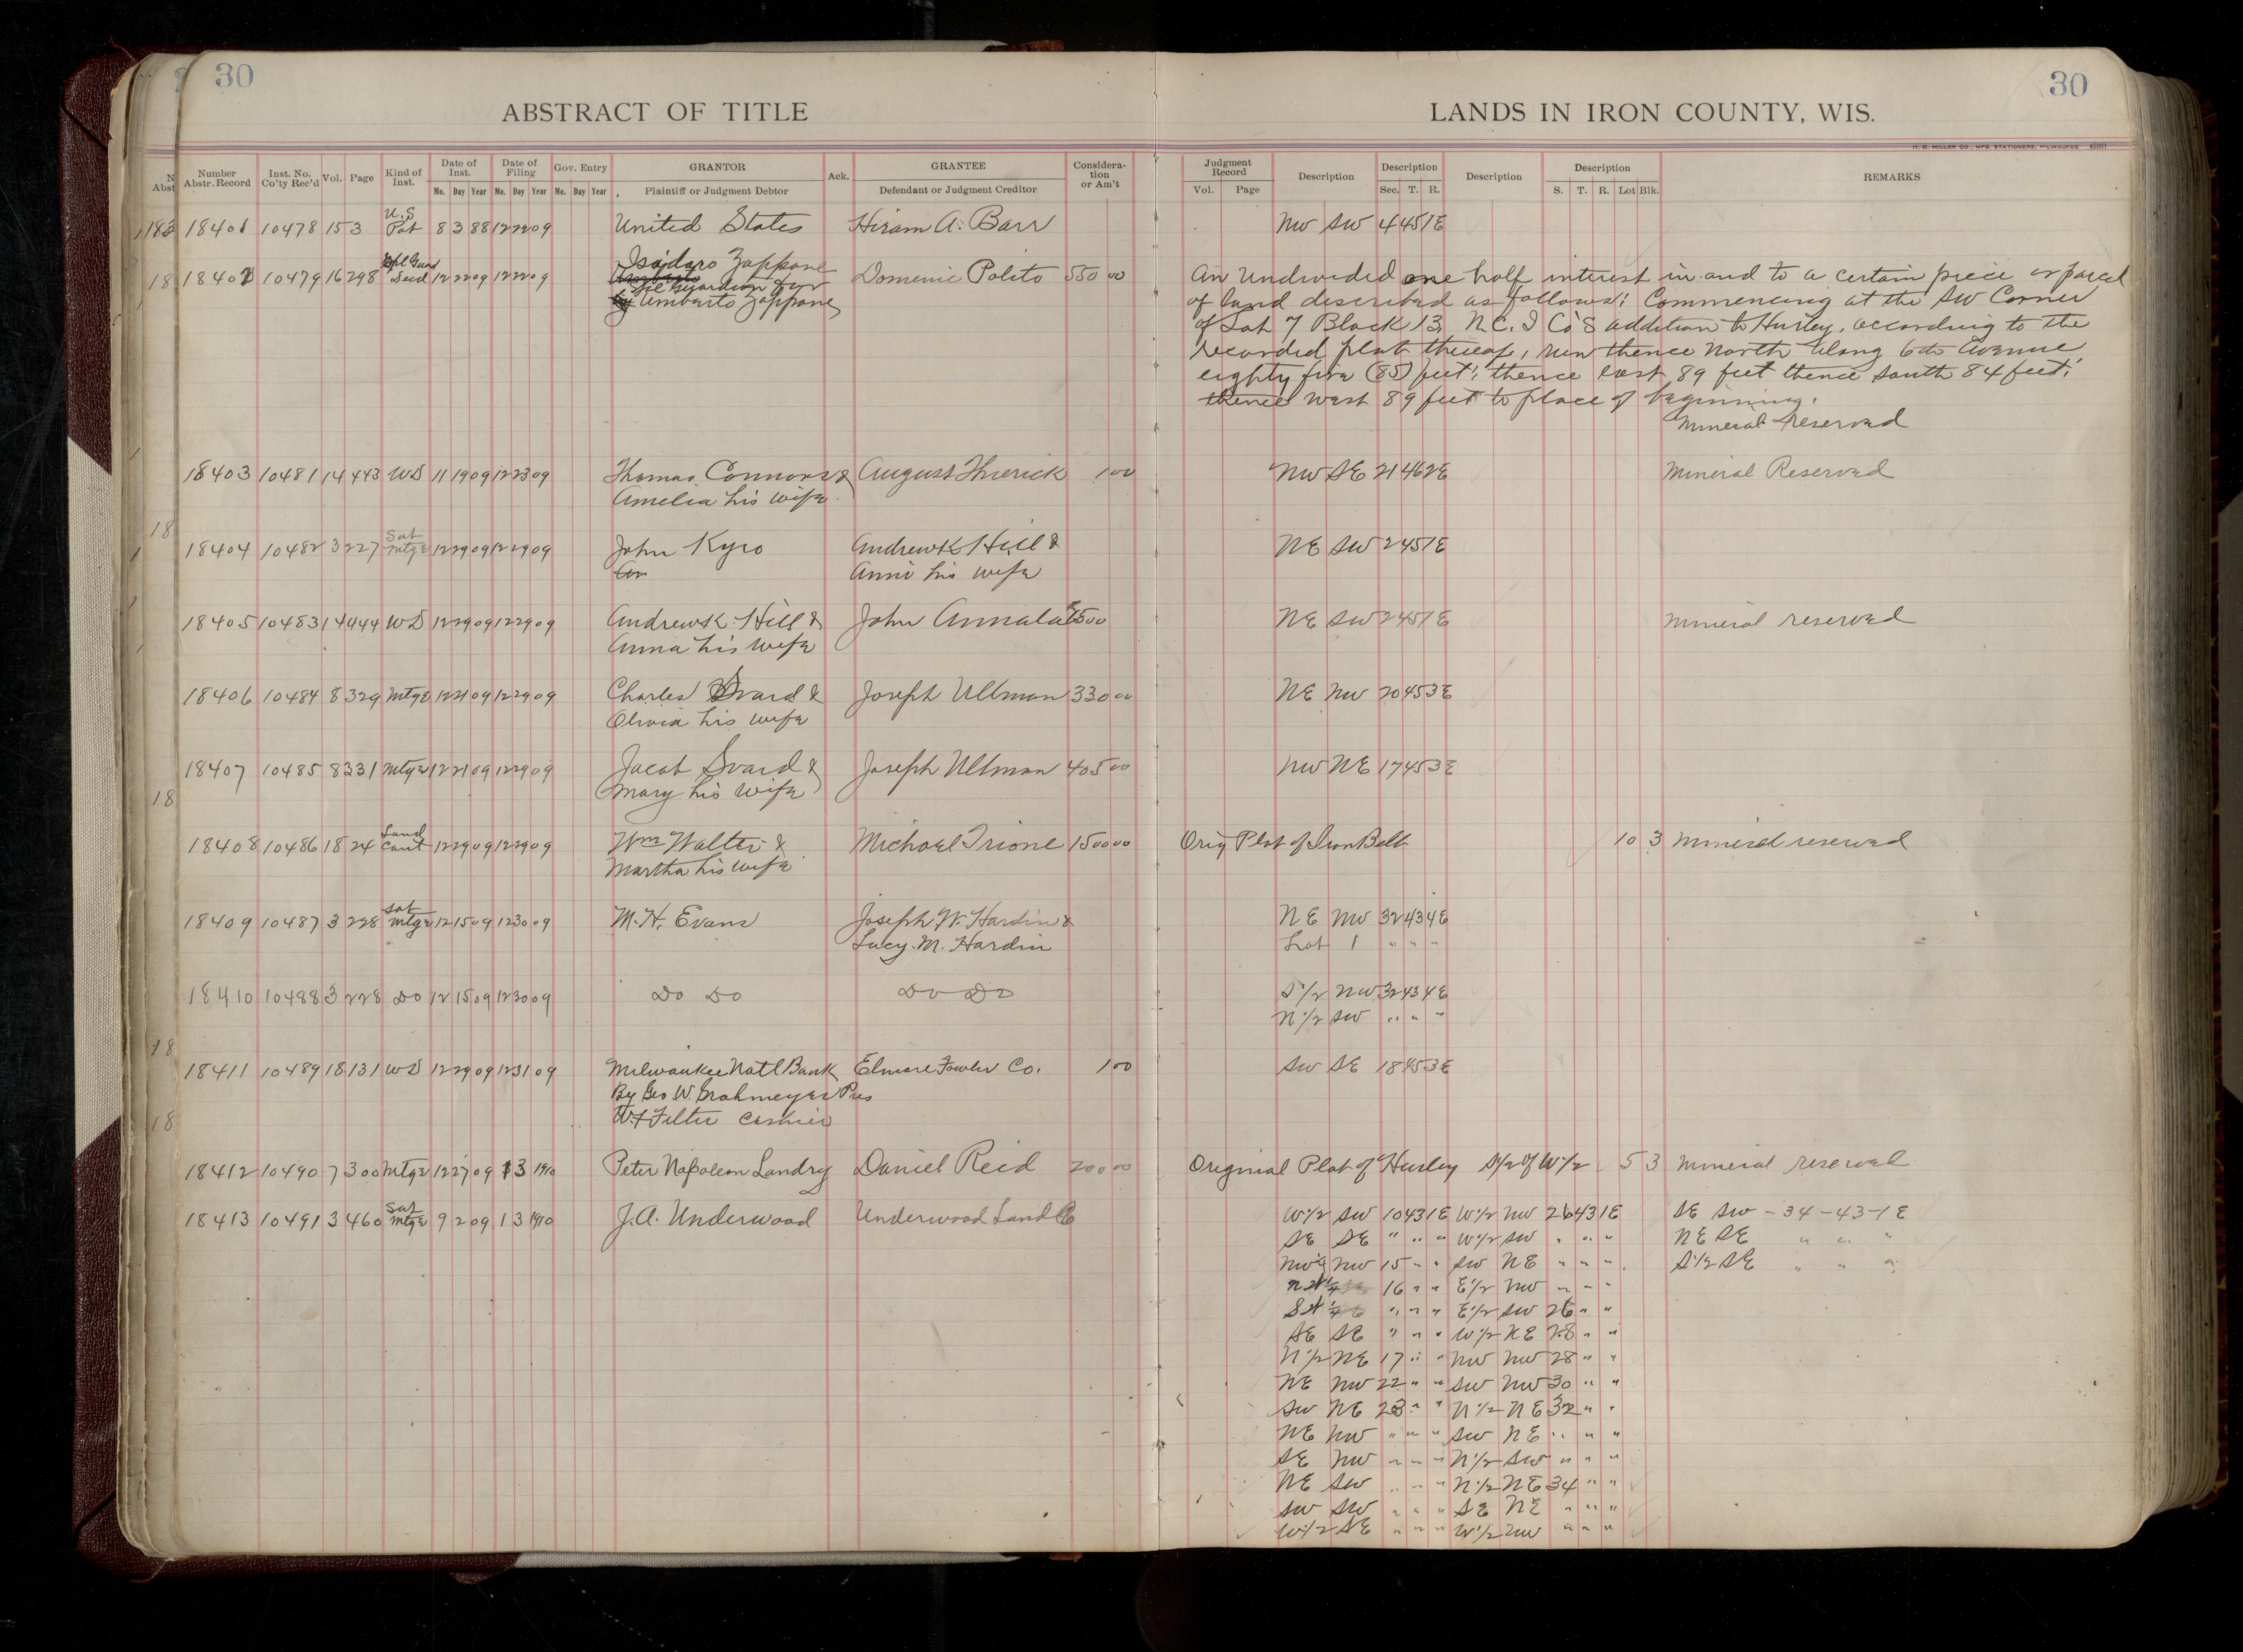 30
30
ABSTRACT OF TITLE
LANDS IN IRON COUNTY, WIS.
H. C. MILLER CO., MFG. STATIONERS, MILWAUKEE
Number Abstr. Record | Inst. No. Co'ty Rec'd | Vol. | Page | Kind of Inst. | Date of Inst. Mo. Day Year | Date of Filing Mo. Day Year | Gov. Entry Mo. Day Year | GRANTOR Plaintiff or Judgment Debtor | Ack. | GRANTEE Defendant or Judgment Creditor | Considera- tion or Am't
Judgment Record Vol. Page | Description | Description Sec. T. R. | Description | Description S. T. R. Lot Blk. | REMARKS
18401 10478 15 3 U.S Pat 8 3 88 12 22 09 United States Hiram A. Barr NW SW 4 45 1E
18402 10479 16 298 Spl Guad Deed 12 22 09 12 22 09 Isidaro Zappone Domenic Polito 550 00
Spl Guardian for
Umbarto Zappone
An Undivided one half interest in and to a certain piece or parcel
of land described as follows: Commencing at the SW Corner
of Lot 7 Block 13, N.C.I Co's addition to Hurley, according to the
recorded plat thereof, run thence North along 6th Avenue
eighty five (85) feet; thence East 89 feet thence South 84 feet;
thence West 89 feet to place of beginning.
Mineral reserved
18403 10481 14 443 WD 11 19 09 12 23 09 Thomas Connors & August 1 00 NW SE 21 46 2E Mineral Reserved
Amelia his wife
18404 10482 3 227 Sat Mtge 12 29 09 12 29 09 John Kyro Andrew K Hill & NE SW 2 45 1E
An Anni his wife
18405 10483 14 444 WD 12 29 09 12 29 09 Andrew K. Hill & John Annala NE SW 2 45 1E Mineral reserved
Anna his wife
18406 10484 8 329 Mtge 12 21 09 12 29 09 Charles Svard & Joseph Ullman 330 00 NE NW 20 45 3E
Olivia his wife
18407 10485 8 331 Mtge 12 21 09 12 29 09 Jacob Svard & Joseph Ullman 405 00 NW NE 17 45 3E
Mary his wife
18408 10486 18 24 Land Cont 12 29 09 12 29 09 Wm Walter & Michael Trione 1500 00 Orig Plat of Iron Belt 10 3 Mineral reserved
Martha his wife
18409 10487 3 228 Sat Mtge 12 15 09 12 30 09 M. H. Evans Joseph W. Hardin & NE NW 32 43 4E
Lucy M. Hardin Lot 1 " " "
18410 10488 3 228 Do 12 15 09 12 30 09 Do Do Do Do S 1/2 NW 32 43 4E
N 1/2 SW " " "
18411 10489 18 131 WD 12 29 09 12 31 09 Milwaukee Natl Bank Elmore Fowler Co. 1 00 SW SE 18 45 3E
By Geo W. Pres
Cashier
18412 10490 7 300 Mtge 12 27 09 1 3 1910 Peter Napoleon Landry Daniel Reid 200 00 Original Plat of Hurley S 1/2 of W 1/2 5 3 Mineral reserved
18413 10491 3 460 Sat Mtge 9 2 09 1 3 1910 J. A. Underwood Underwood Land Co W 1/2 SW 10 43 1E W 1/2 NW 26 43 1E SE SW - 34 - 43 - 1 E
SE SE " " " W 1/2 SW " " " NE SE " " "
NW NW 15 " " SW NE " " " S 1/2 SE " " "
16 " " E 1/2 NW " " "
" " " E 1/2 SW 26 " "
SE SE " " " W 1/2 NE 28 " "
N 1/2 NE 17 " " NW NW 28 " "
NE NW 22 " " SW NW 30 " "
SW NE 23 " " N 1/2 NE 32 " "
NE NW " " " SW NE " " "
SE NW " " " N 1/2 SW " " "
NE SW " " " N 1/2 NE 34 " "
SW SW " " " SE NE " " "
W 1/2 SE " " " W 1/2 NW " " "